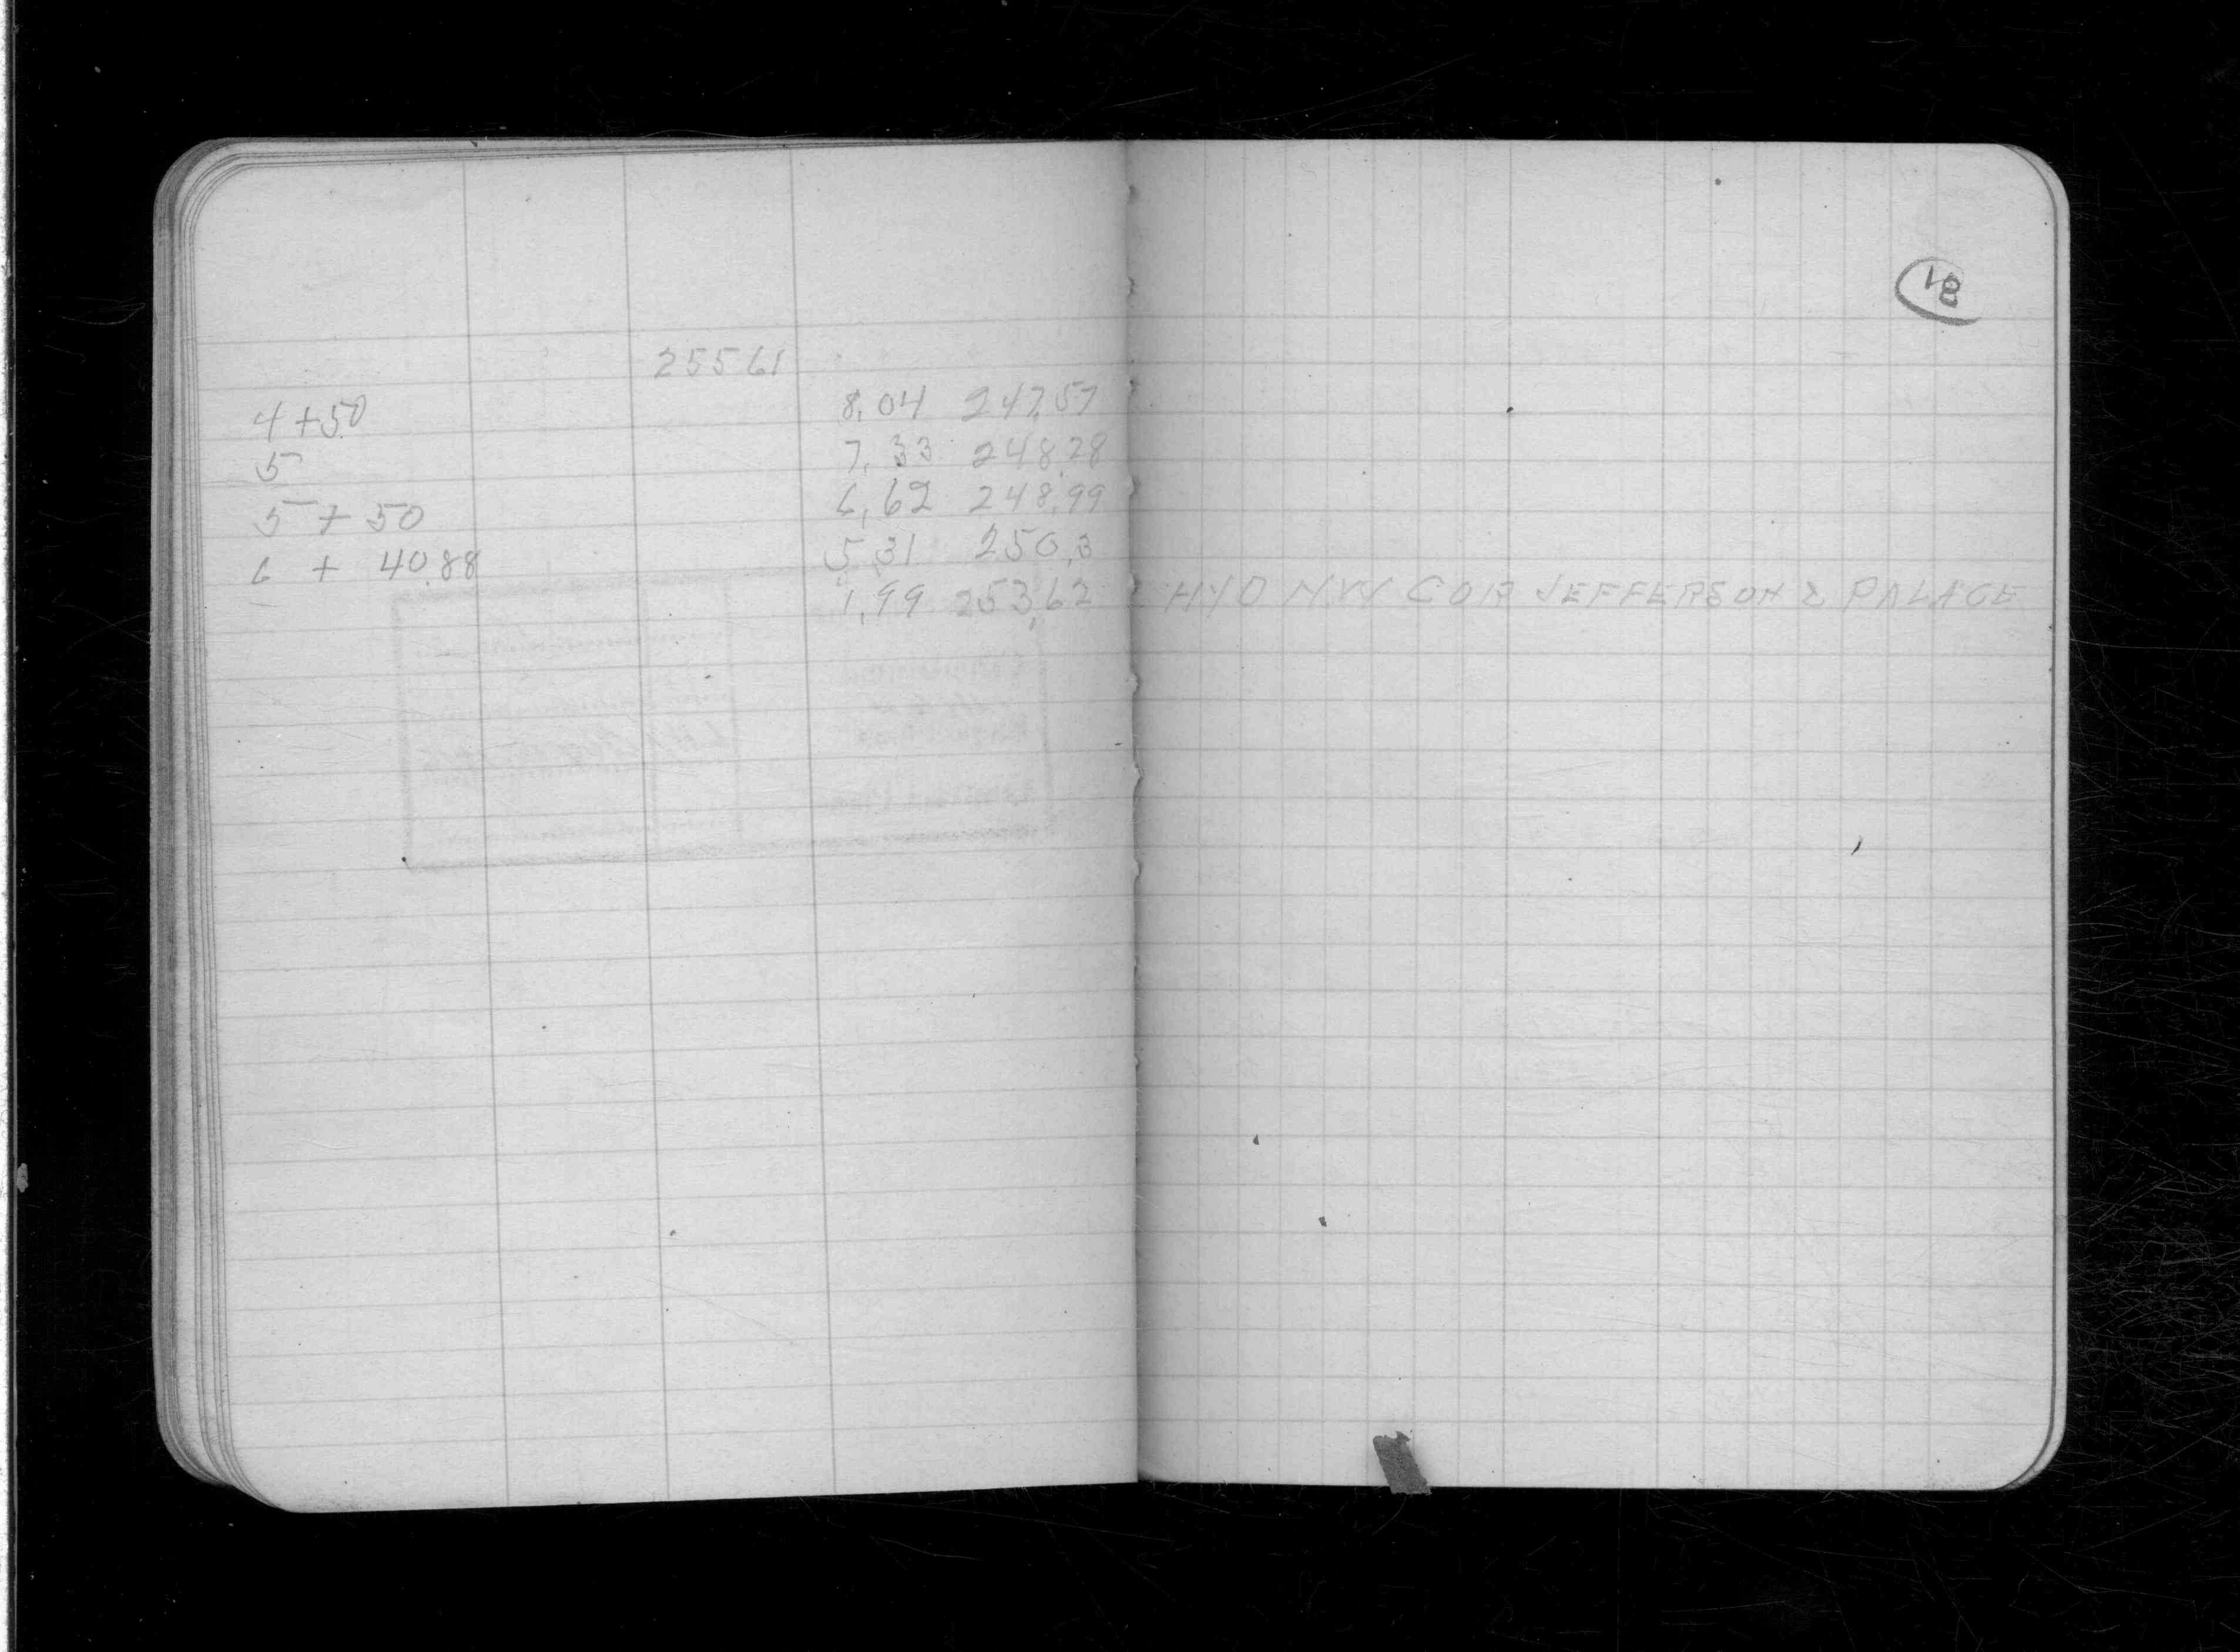 18
25561
4+50 8.04 247.57
5 7.33 248.28
5+50 6.62 248.99
6 + 40.88 5.31 250.3
1.99 253.62 HYD N.W COR JEFFERSON & PALACE